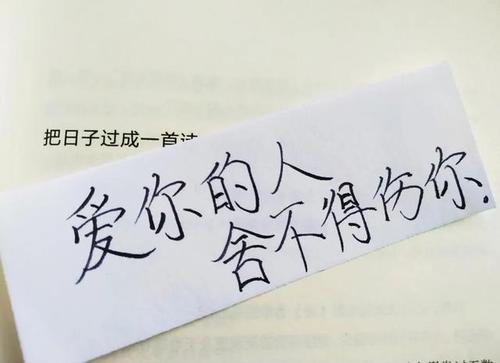 把日子过成一首诗
爱你的人
舍不得伤你.